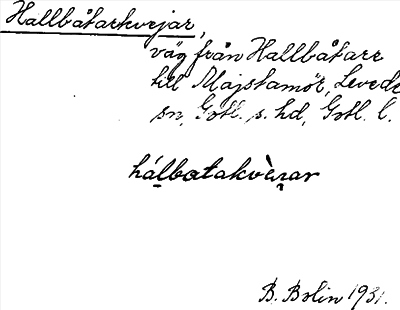 Hallbåtarkvejar,
väg från Hallbåtarr
till Majstamör, Levede
sn, Gotl. s. hd, Gotl. l.
hálbatakvèıar
B. Bolin 1931.